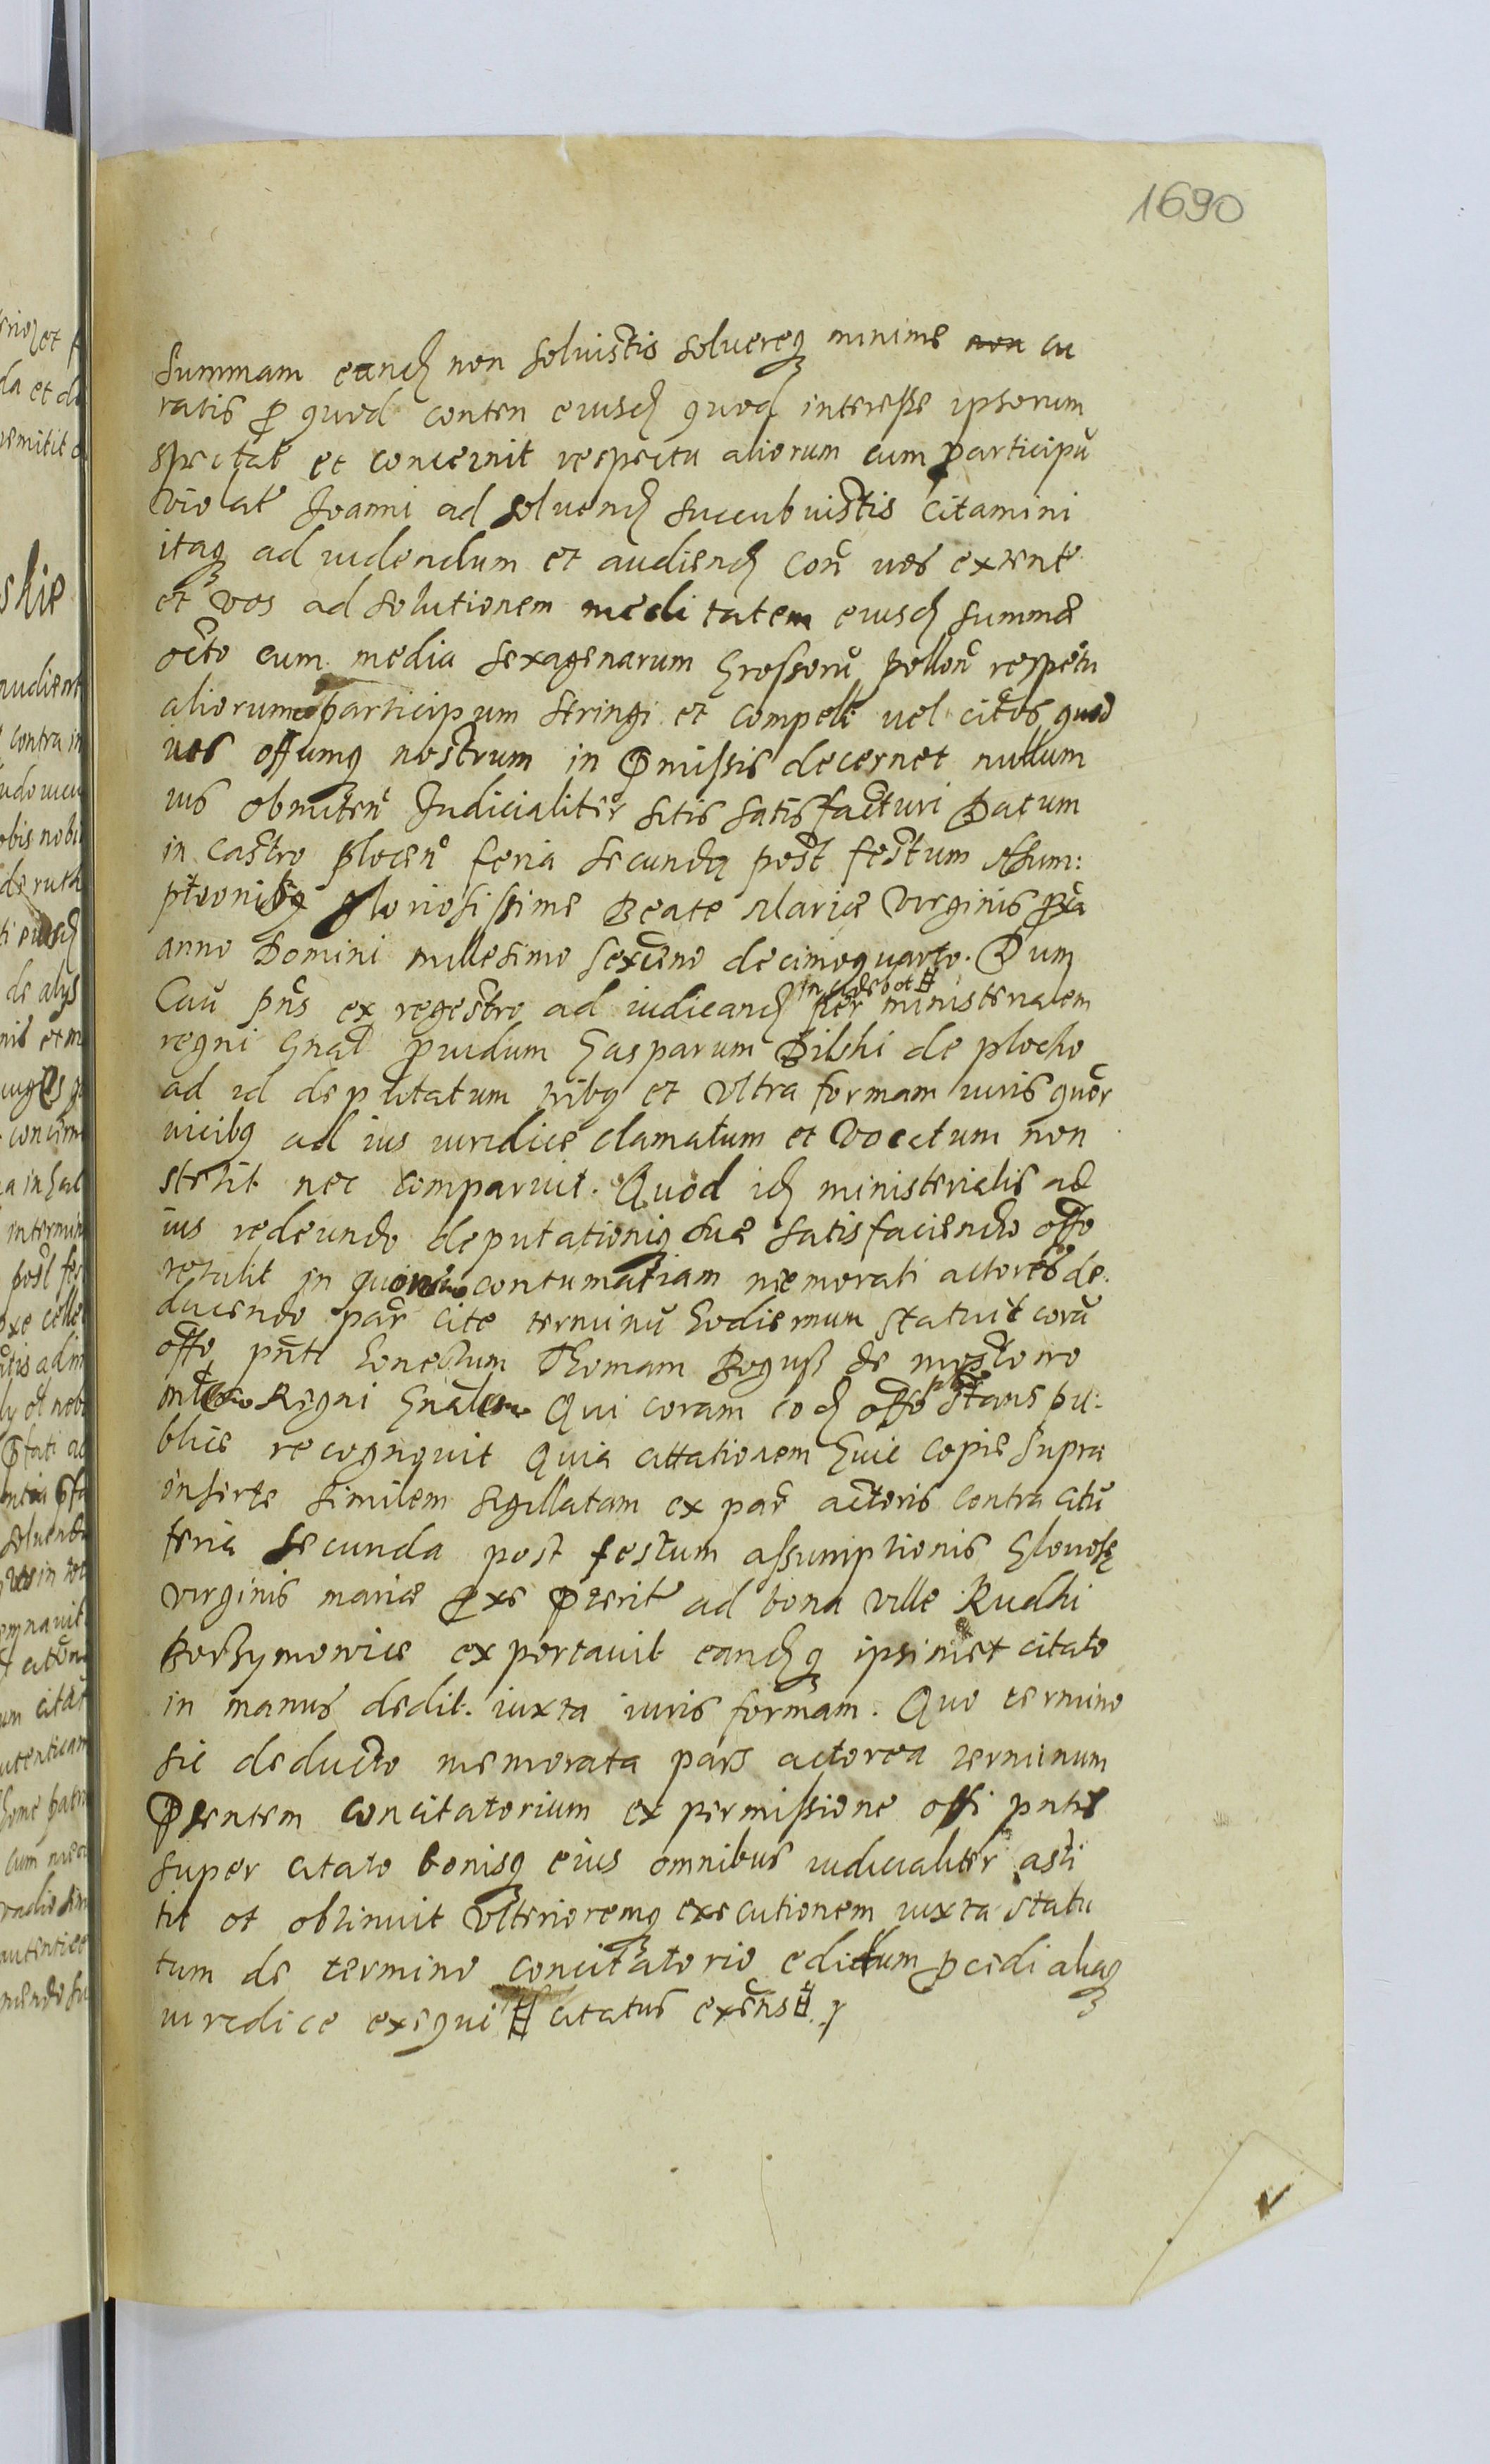 1690
Summam eand non soluistis soluereq minime non cu
ratis p quod conten eiusd quod interesse ipsorum
spectat et concernit respectu aliorum cum participu
violat Joanni ad soluend succubuistis Citamini
itaq ad uidendum et audiend con uos extente
et vos ad solutionem medi tatem eiusd summæ
octo cum media sexagenarum Grossoru pollon respectu
aliorum participum stringi et compelli uel citos quod
uos offumq nostrum in Pmissis decernet nullum
ius obmiten Judicialiter sitis satisfacturi Datum
in castro plocen feria secunda post festum Assum:
ptionisq gloriosissime Beate Mariæ Virginis pxa
anno Domini millesimo sexcno decimoquarto. Dum
Cau pns ex regestro ad iudicand per ministerialem
regni Gnal puidum Gasparum Bilski de plocko
ad id deputatum tribq et Vltra formam iuris quer
uicibq ad ius iuridice clamatum et Vocatum non
stetit nec comparuit. Quod id ministerialis ad
ius redeundo deputationiq suæ satisfaciendo offo
retulit in contumatiam memorati actores de.
ducendo par cite terminu hodiernum statuit coru
offo pnti honestum Thomam Boguss de
Regni Gnalem Qui coram eod offo stans pu:
blice recognouit Quia cittationem huic copie supra
inserte similem sigillatam ex par actoris contra citu
feria secunda post festum assumptionis Glouose
virginis mariæ pxe Pterit ad bona ville Rudki
Borzymowice exportauit eandq ipsimet citato
in manus dedit. iuxta iuris formam. Quo termino
sic deducto memorata pars actorea terminum
Psentem concitatorium ex permissione offi pntis
super citato bonisq eius omnibus iudicialiter asti
tit et obtinuit Vlterioremq executionem iuxta statu
tum de termino concitatorio editum pcedi aliaq
iuredice exequi # citatus exens #